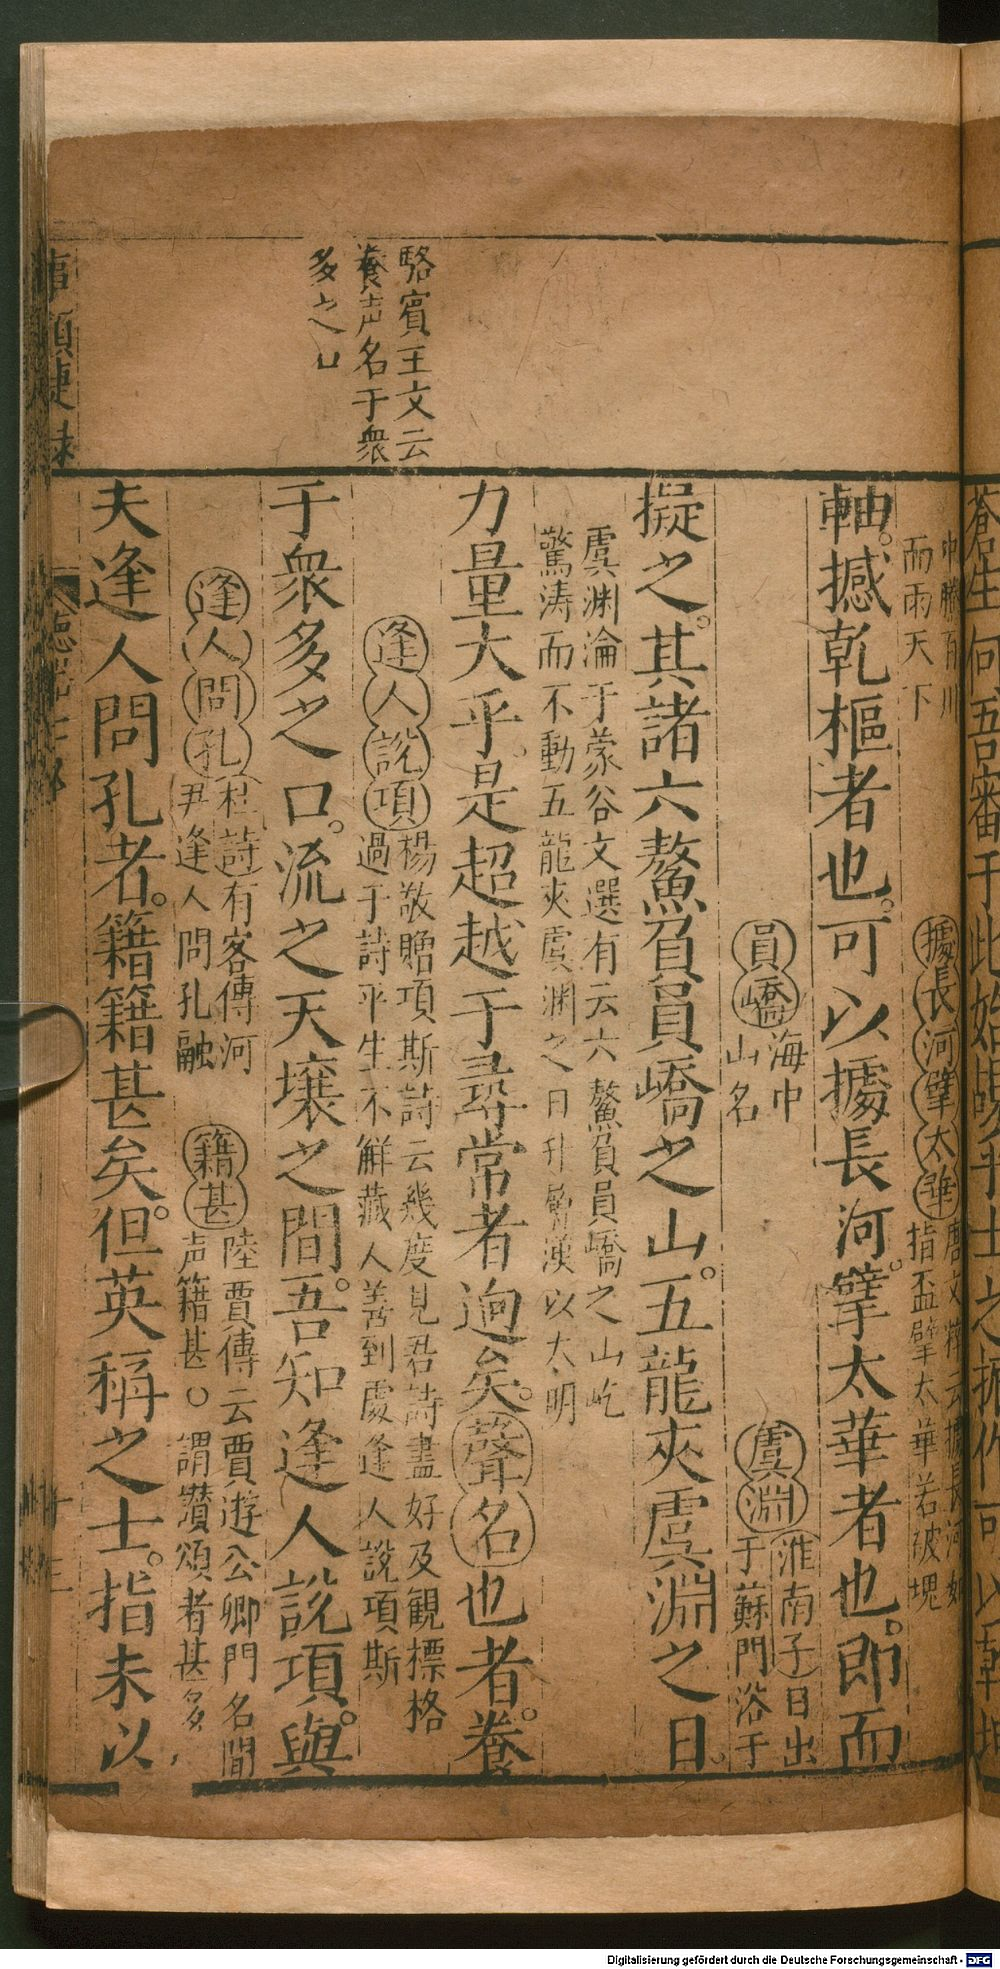 蒼生何吾審于此
中勝百川
而雨天下
據長河擘太華
唐文粹云據長河如
指盃擘太華若破塊
軸撼乾樞者也可以據長河擘太華者也即而
員嶠
海中
山名
虞淵
淮南子日出
于蘇門浴于
擬之其諸六鰲負員嶠之山五龍夾虞淵之日
虞渊淪于蒙谷文選有云六鰲負員嶠之山屹
驚涛而不動五龍夾虞渊之日升漢以大明
力量大乎是超越于尋常者逈矣聲名也者養
駱賓王文云
養声名于衆
多之口
逢人說項
楊敬贈項斯詩云幾度見君詩盡好及観標格
過于詩平生不鮮藏人善到處逢人說項斯
于衆多之口流之天壤之間吾知逢人說項與
逢人問孔
杜詩有客傳河
尹逢人問孔融
籍甚
陸賈傳云賈遊公卿門名聞
声籍甚〇謂讃頌者甚多
夫逢人問孔者籍籍甚矣但英稱之士指未以